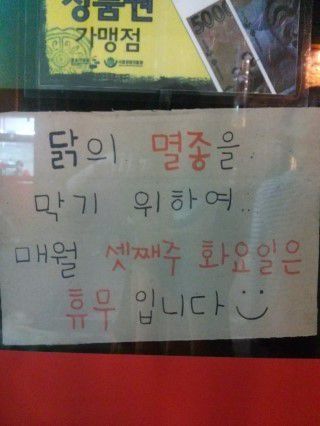 상품권
가맹점
5000
닭의 멸종을..
막기 위하여..
매월 셋째주 화요일은
휴무 입니다